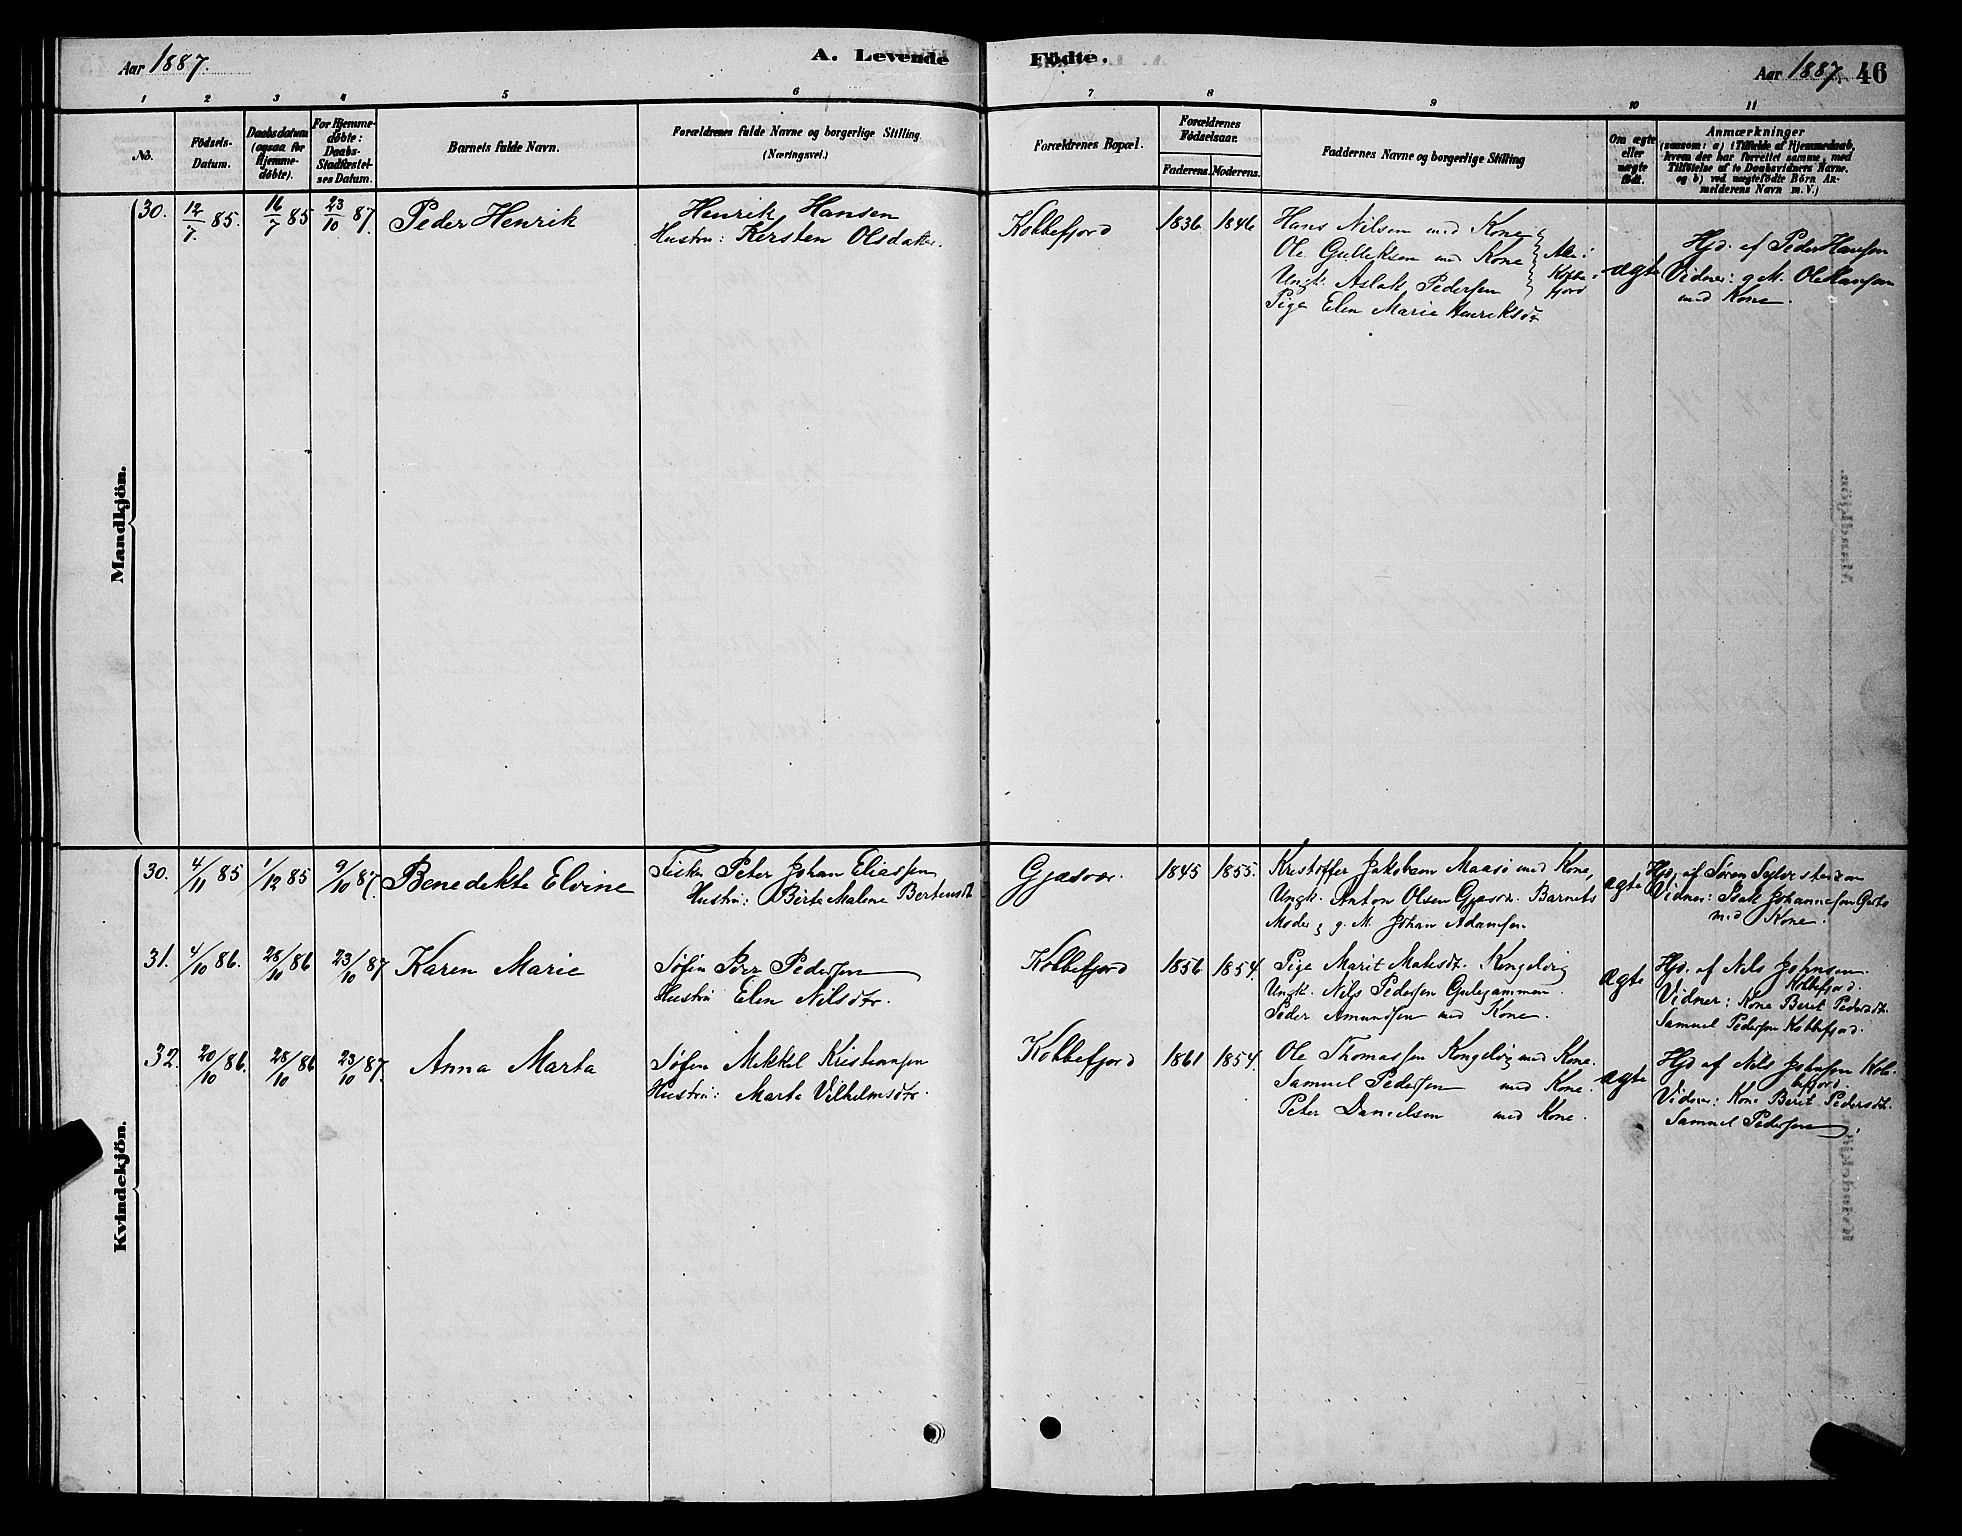 Aar 1887.
A. Levende Födte.
Aar 1887. 46
1 2 3 4 5 6 7 8 9 10 11
No.
Födsels-Datum.
Daabsdatum (ogsaa for Hjemme-døbte).
For Hjemme-døbte: Daabs-Stadfæstel-ses Datum.
Barnets fulde Navn.
Forældrenes fulde Navne og borgerlige Stilling. (Næringsvei.)
Forældrenes Bopæl.
Forældrenes Födselsaar.
Faderens. Moderens.
Faddernes Navne og borgerlige Stilling
Om ægte eller uægte født.
Anmærkninger
(saasom: a) i Tilfælde af Hjemmedaab,
hvem der har forrettet samme, med
Tilföielse af to Daabsvidners Navne.
og b) ved uægtefödte Börn An-
melderens Navn m. V.)
Mandkjön.
30. 12/7 85. 16/7 85 23/10 87. Peder Henrik
Henrik Hansen
Hustru: Kersten Olsdatter.
Kobbefjord 1836 1846
Hans Nilsen med Kone
Ole Gulleksen med Kone
Ungk. Aslak Pedersen
Pige Elen Marie Henriksdtr
Alle i Kobbefjord
ægte
Hjd. af Peder Hansen
Vidner: g. M. Ole Hansen
med Kone.
Kvindekjön.
30. 4/11 85 1/12 85 9/10 87. Benedikte Elvine
Fisker Peter Johan Eliassen
Hustru: Birte Malene Bertensdt
Gjæsvær. 1845 1855.
Kristoffer Jakobsen Maasö med Kone,
Ungk. Anton Olsen Gjæsvr. Barnets
Moder, g. M. Johan Adamsen
ægte
Hjd. af Sören Sylvestersen
Vidner: Isak Johannesen
med Kone.
31. 4/10 86. 28/10 86 23/10 87 Karen Marie
Söfin Per Pedersen
Hustru Elen Nilsdtr.
Kobbefjord 1856 1854.
Pige Marit Matisdt. Kongelvig
Ungk. Nils Pedersen Gulgammen.
Peder Amundsen med Kone.
ægte
Hjd. af Nils Johnsen
Kobbefjord.
Vidner: Kone Berit Pedersdt.
Samuel Pedersen Kobbefjord.
32. 20/10 86. 28/10 86 23/10 87. Anna Marta
Söfin Mikkel Kristiansen
Hustru: Marte Vilhelmsdtr.
Kobbefjord 1861 1854.
Ole Thomassen Kongelvig med Kone.
Samuel Pedersen med Kone.
Peter Danielsen med Kone.
ægte
Hjd af Nils Johnsen Kob-
befjord.
Vidner: Kone Berit Pedersdt.
Samuel Pedersen.